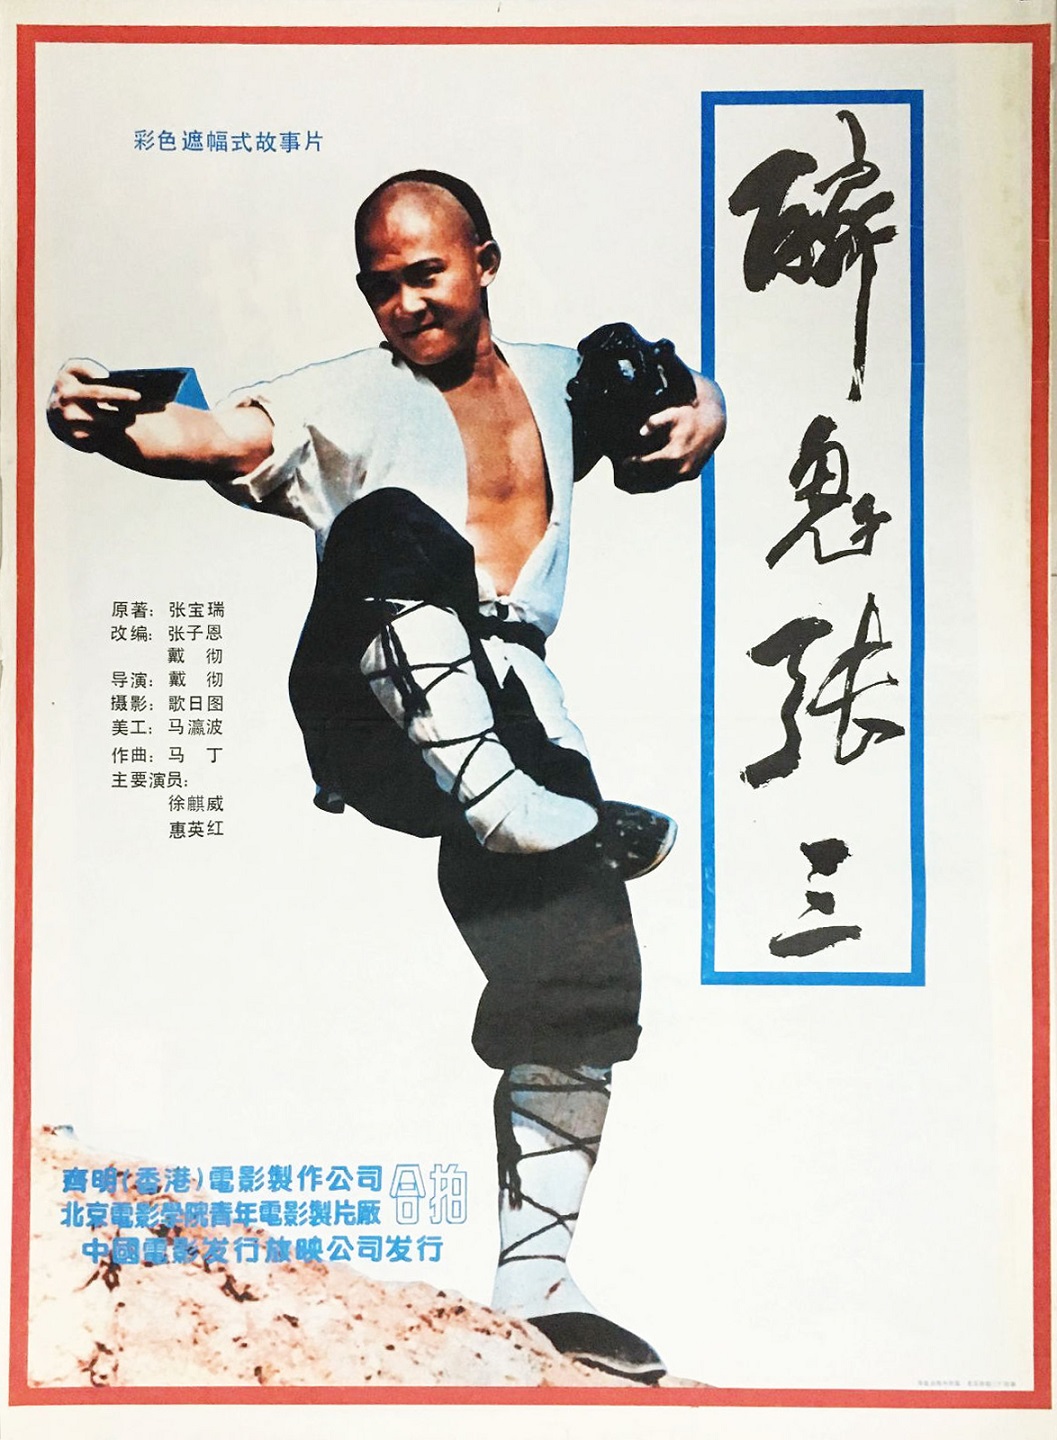 彩色遮幅式故事片
醉鬼张三
原著：张宝瑞
改编：张子恩
戴彻
导演：戴彻
摄影：歌日图
美工：马瀛波
作曲：马丁
主要演员：
徐麒威
惠英红
齊明(香港)電影製作公司
北京電影學院青年電影製片廠
合拍
中國電影发行放映公司发行